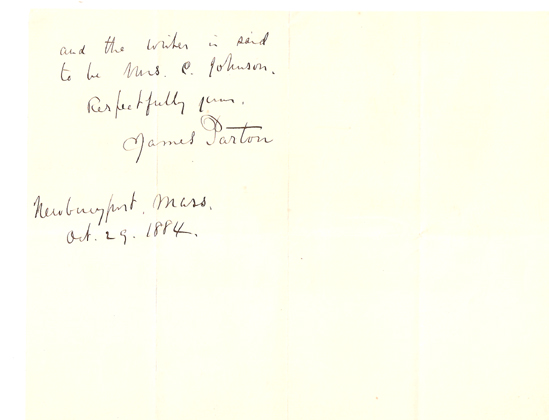 and the writer is said
to be Mrs. C. Johnson.
Respectfully yours.
James Parton
Newburyport, Mass.
Oct. 29. 1884.